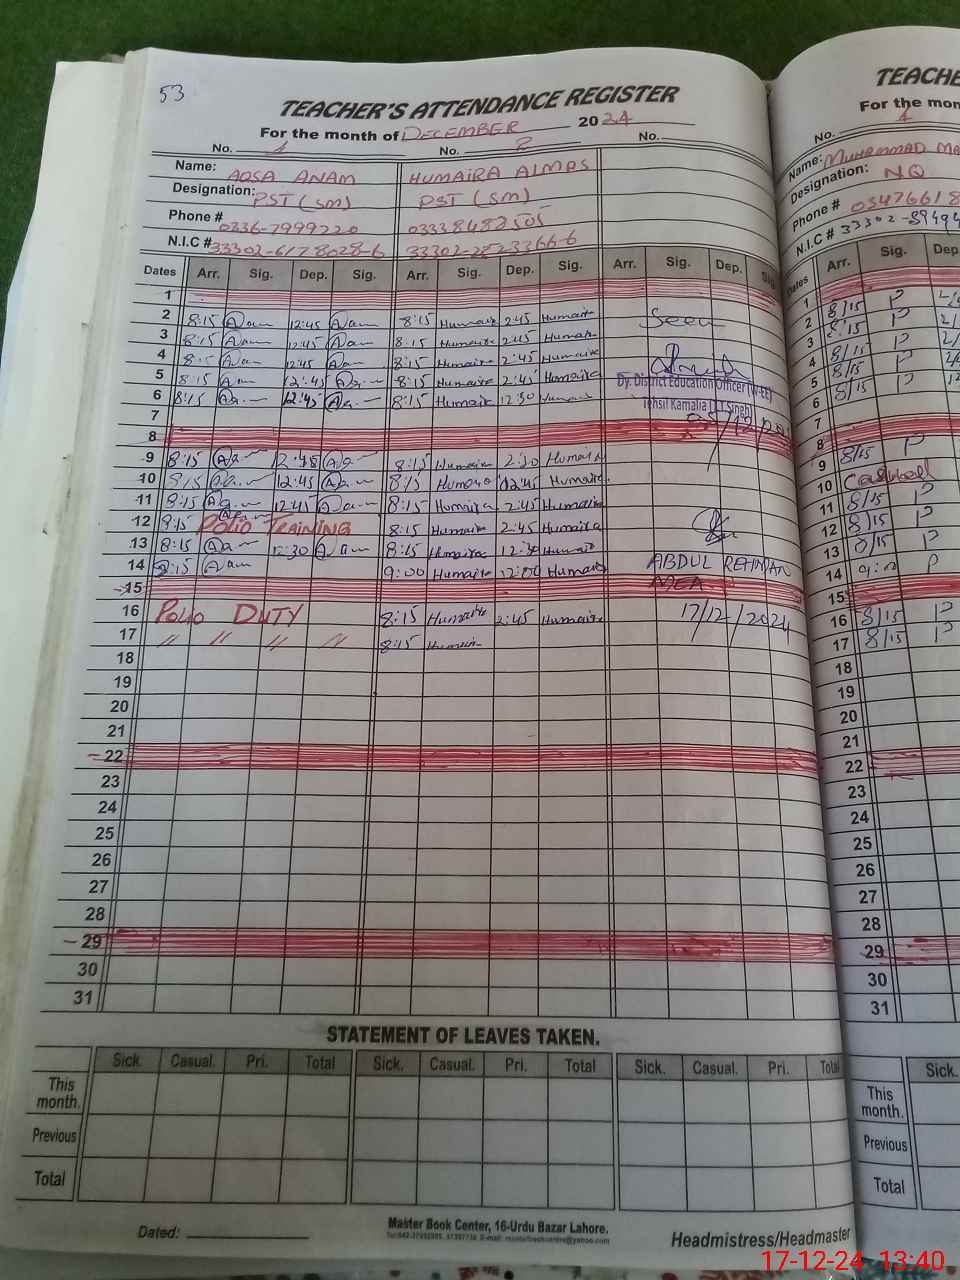 53
TEACHER'S ATTENDANCE REGISTER
For the month of DECEMBER 2024
No. 1 No. 2 No.
Name: AQSA ANAM HUMAIRA ALMAS
Designation: PST (SM) PST (SM)
Phone # 0336-7999220 03338482505
N.I.C # 33302-6178028-6 33302-2823366-6
Dates Arr. Sig. Dep. Sig. Arr. Sig. Dep. Sig. Arr. Sig. Dep. Sig.
1
2 8:15 Aam 12:45 Aam 8:15 Humaira 2:45 Humaira Seen
3 8:15 Aam 12:45 Aam 8:15 Humaira 2:45 Humaira
4 8:15 Aam 12:45 8:15 Humaira 2:45 Humaira
5 8:15 Aam 12:45 8:15 Humaira 2:45 Humaira Dy. District Education Officer (W-EE)
6 8:15 12:45 8:15 Humaira 12:30 Humaira Tehsil Kamalia (T.T Singh)
7
8
9 8:15 12:45 8:15 Humaira 2:30 Humaira
10 8:15 12:45 8:15 Humaira 12:45 Humaira
11 8:15 12:45 Aam 8:15 Humaira 2:45 Humaira
12 8:15 POLIO TRAINING 8:15 Humaira 2:45 Humaira
13 8:15 Aam 12:30 Aam 8:15 Humaira 12:30 Humaira
14 8:15 Aam 9:00 Humaira 12:00 Humaira ABDUL REHMAN
15 MEA
16 POLIO DUTY 8:15 Humaira 2:45 Humaira 17/12/2024
17 // // // // 8:15 Humaira
18
19
20
21
22
23
24
25
26
27
28
29
30
31
STATEMENT OF LEAVES TAKEN.
Sick. Casual. Pri. Total Sick. Casual. Pri. Total Sick. Casual. Pri. Total
This month.
Previous
Total
Dated:
Master Book Center, 16-Urdu Bazar Lahore.
Headmistress/Headmaster
TEACHE
For the mon
No. 1
Name: MUHAMMAD MA
Designation: NQ
Phone # 03476618
N.I.C # 33302-89494
Dates Arr. Sig. Dep
1
2 8/15 P
3 8:15 P
4 8/15 P
5 8/15 P
6 8/15 P
7
8
9 8/15 P
10 Casual
11 8/15 P
12 8/15 P
13 8/15 P
14 9:00 P
15
16 8/15 P
17 8/15 P
18
19
20
21
22
23
24
25
26
27
28
29
30
31
Sick.
This month.
Previous
Total
17-12-24 13:40